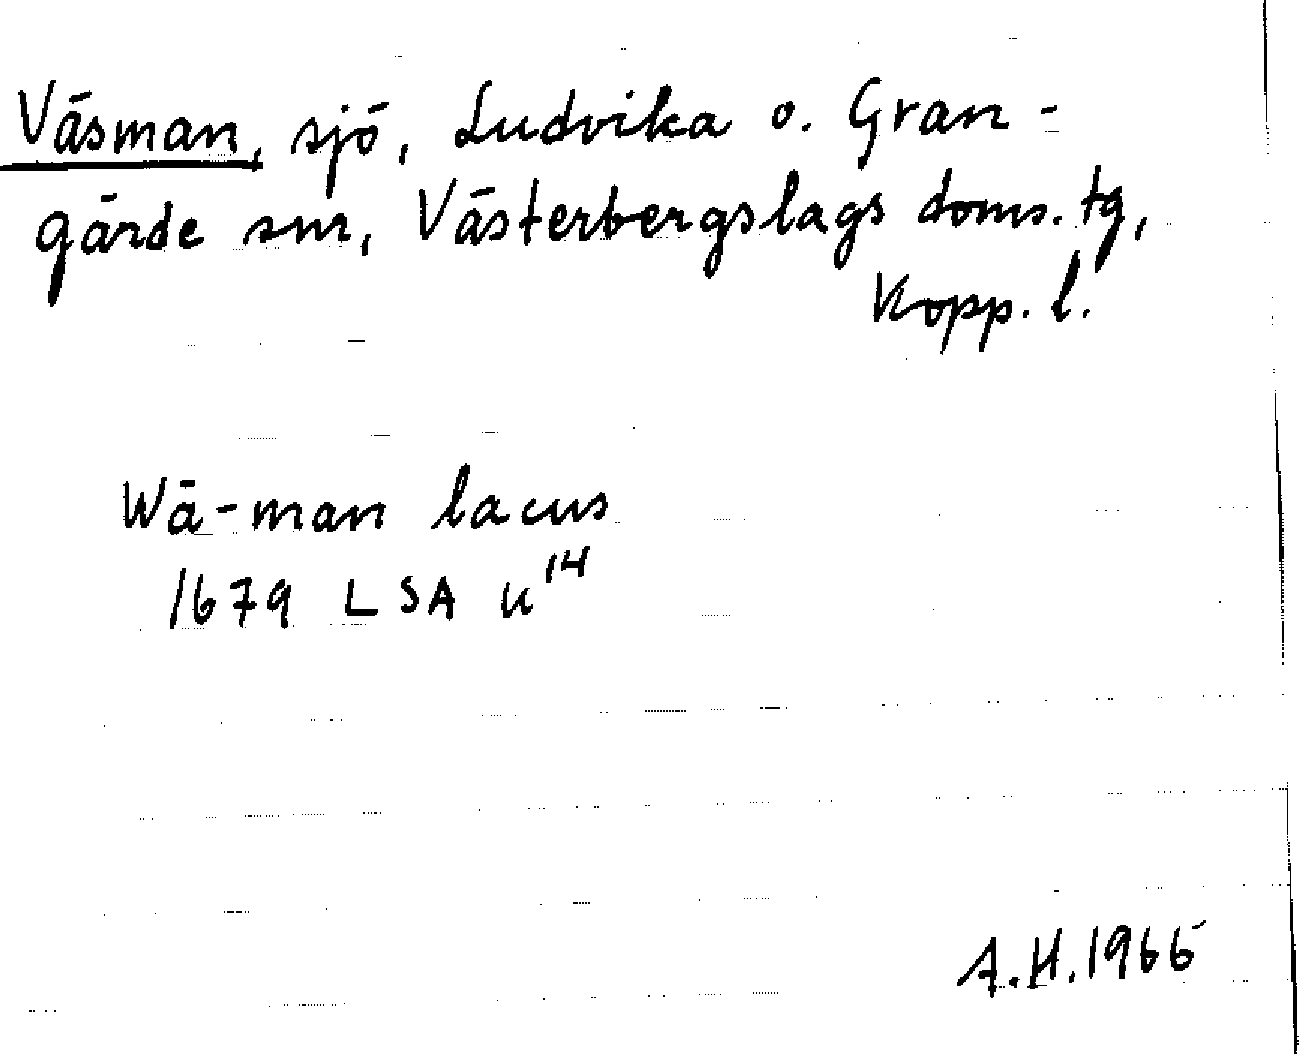 Väsman, sjö, Ludvika o. Gran-
gärde snr, Västerbergslags doms. tg,
Kopp. l.
Wä-man lacus
1679 LSA U14
A.H. 1965